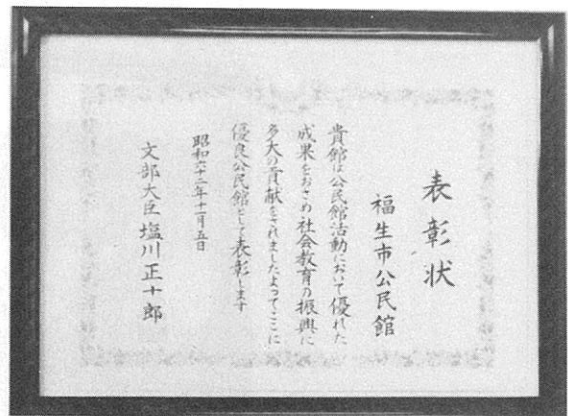 表彰状
福生市公民館
貴館は公民館活動において優れた
成果をおさめ社会教育の振興に
多大の貢献をされましたよってここに
優良公民館として表彰します
昭和六十二年十一月五日
文部大臣 塩川正十郎